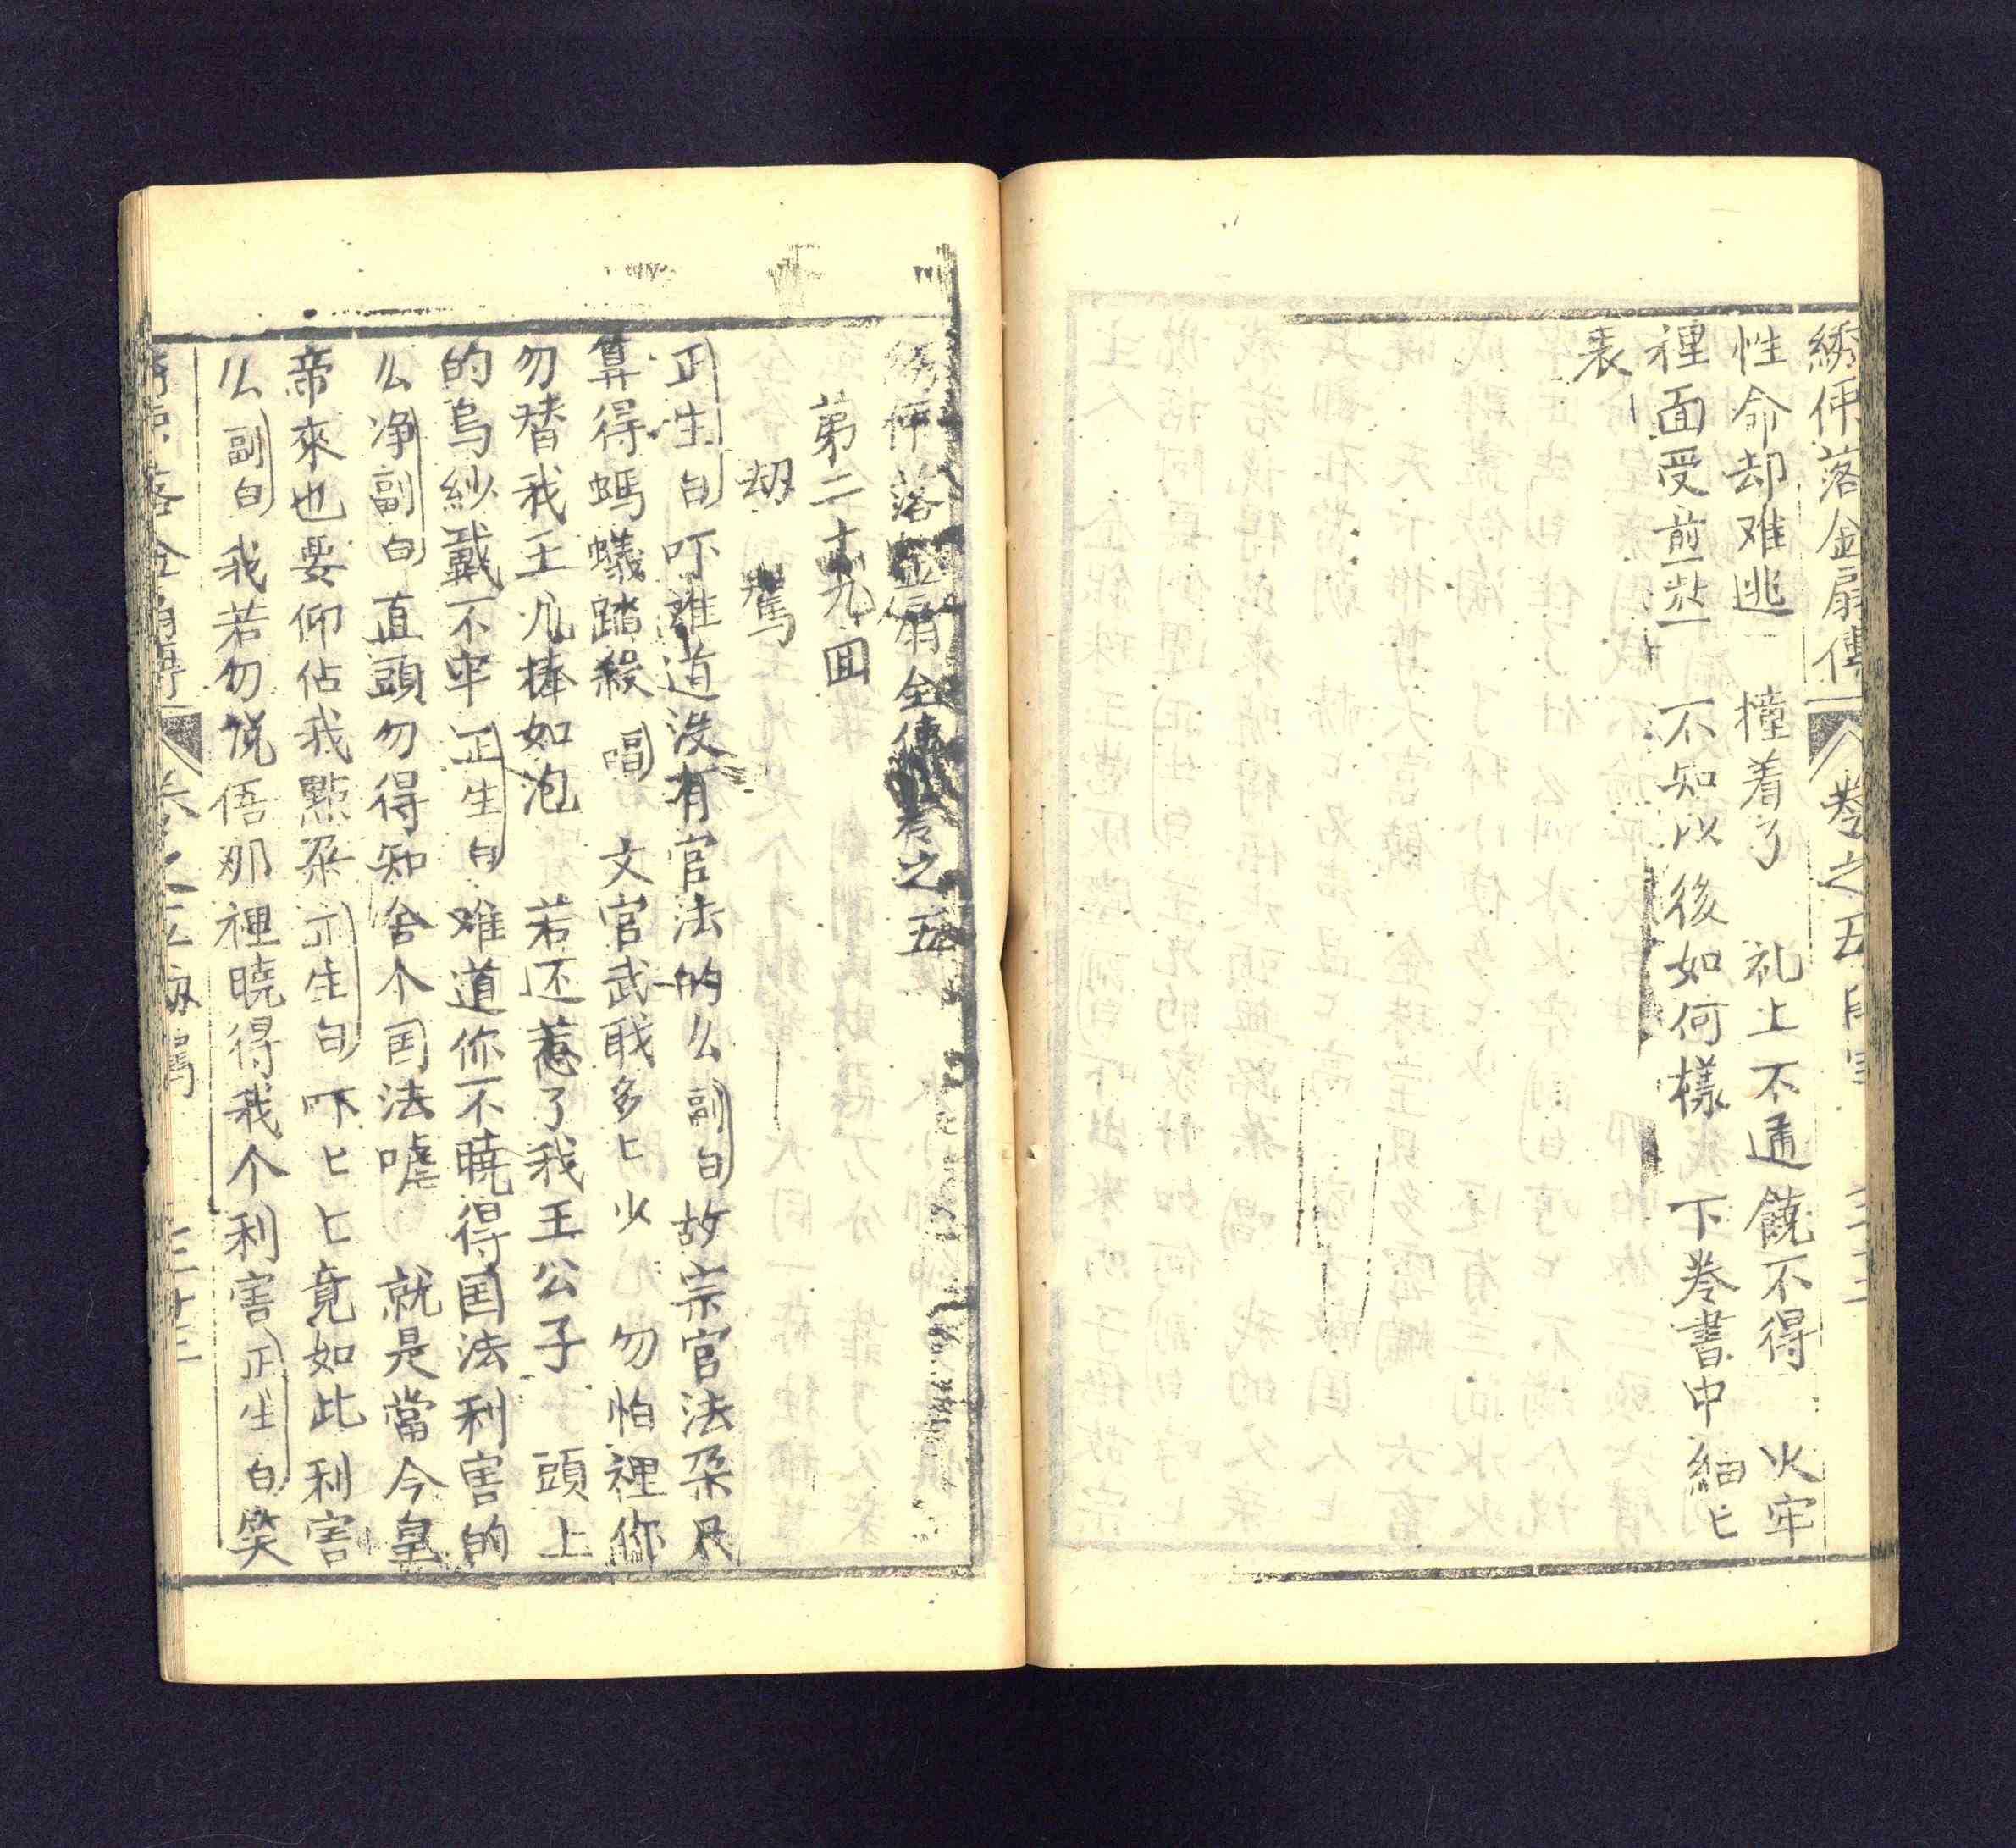 綉仴落金扇傳 卷之五
性命却难逃 撞着了 礼上不通饒不得 火牢
裡面受煎熬 不知以後如何樣 下卷書中細匕
表
落金扇全傳卷之五
第二十九回
劫駕
正生白吓难道没有官法的么副白故宗官法朶只
算得螞蟻踏殺唱 文官武職多匕少 勿怕裡你
勿替我王儿捧如泡 若还惹了我王公子 頭上
的烏紗戴不牢正生白难道你不曉得国法利害的
么净副白直頭勿得知舍个国法嘘 就是當今皇
帝來也要仰佔我點朶正生白吓匕匕竟如此利害
么副白我若勿悦悟那裡曉得我个利害正生白笑